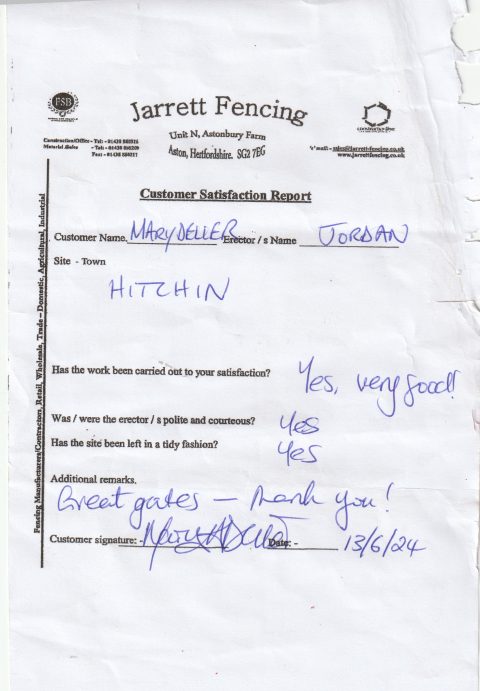 FSB
Jarrett Fencing
Unit N, Astonbury Farm
Aston, Hertfordshire. SG2 7EG
constructionline
Construction/Office - Tel: - 01438
Material Sales - Tel: - 01438
Fax: - 01438
'e' mail - sales@jarrett-fencing.co.uk
www.jarrettfencing.co.uk
Customer Satisfaction Report
Customer Name. MARY DELLER Erector / s Name JORDAN
Site - Town
HITCHIN
Has the work been carried out to your satisfaction? Yes, very good!
Was / were the erector / s polite and courteous? Yes
Has the site been left in a tidy fashion? Yes
Additional remarks.
Great gates – thank you!
Customer signature: - Date: - 13/6/24
Fencing Manufacturers/Contractors, Retail, Wholesale, Trade – Domestic, Agricultural, Industrial